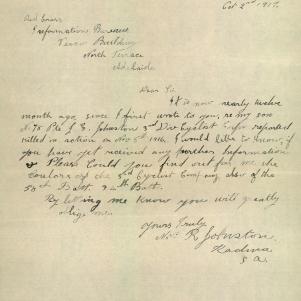 Oct 2nd 1917.
Red Cross
Information Bureau
Verco Building
North Terrace
Adelaide
Dear Sir
It is now nearly twelve
month ago, since I first wrote to you, re my son
Pte L. E. Johnston 3rd Div Cyclist Corp reported
killed in action on Nov 5th 1916. I would like to know, if
you have yet received any further Information
& Please Could you find out for me the
Coulors of the 3rd Cyclist Company, also of the
50th Batt.
By letting me know you will greatly
oblige me
Yours Truly
Mrs R Johnston
Kadina
S.A.